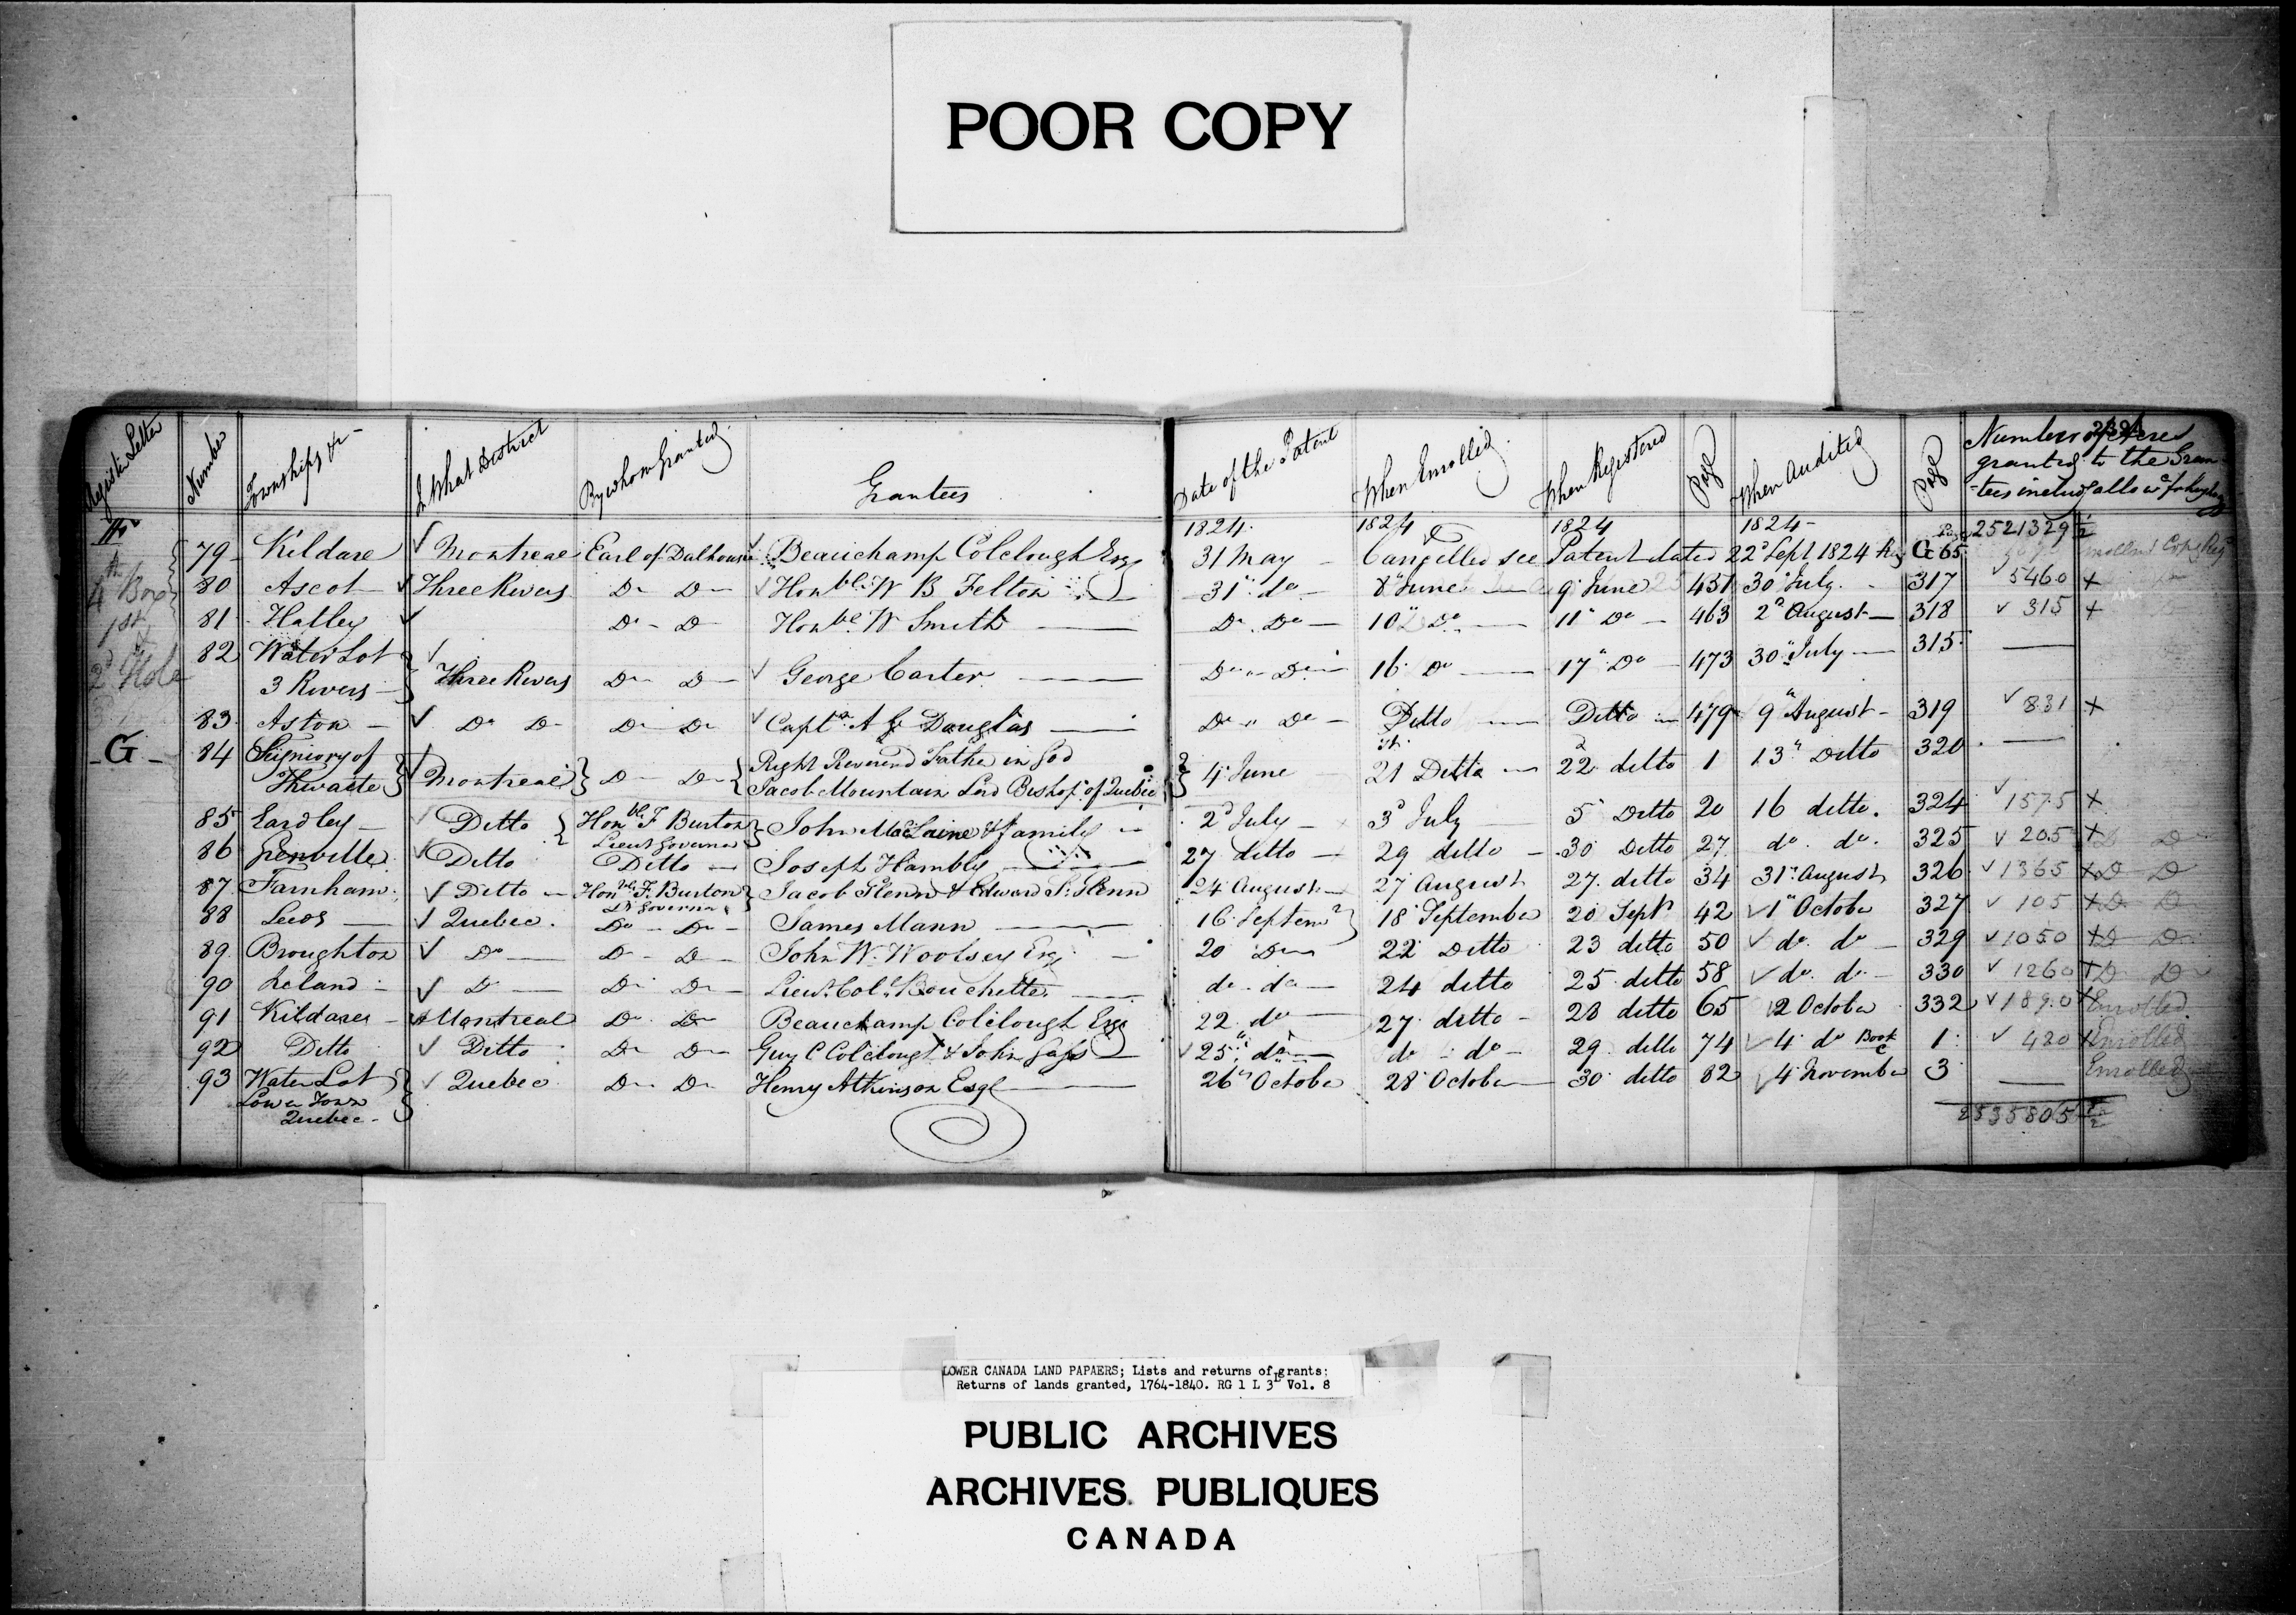 POOR COPY
Register Letter Number Townships &c In What District By whom Granted Grantees Date of the Patent When Enrolled When Registered Page When Audited Page Number of Acres
granted to the Gran
-tees includg allowce for highways
1824. 1824 1824 1824- 2521329 ½
79 Kildare Montreal Earl of Dalhousie Beauchamp Colclough Esq 31 May - Cancelled see Patent dated 22d Sept 1824 Reg G 65
4th Box 80 Ascot Three Rivers Do Do Honble W B Felton 31" do 8" June 9 June 451 30 July 317 5460 +
1st & 81 Hatley Do - Do Honble W Smith Do Do 10" Do 11" Do 463 2d August 318 315 +
2d Hole 82 Water Lot
3 Rivers Three Rivers Do Do George Carter Do " Do 16 Do 17" Do 473 30" July 315
83 Aston Do Do Do Do Capt A G Douglas Do " Do Ditto Ditto 479 9" August 319 831 +
- G - 84 Seigniory of
Thwaite Montreal Do Do Right Reverend Father in God
Jacob Mountain Lord Bishop of Quebec 4 June 21st Ditto 22d ditto 1 13" Ditto 320
85 Eardley Ditto Honble F Burton
Lieut Governor John MacLaine & family 2d July 3d July 5 Ditto 20 16 ditto. 324 1575 +
86 Grenville Ditto Ditto Joseph Hambly 27 ditto 29 ditto 30 Ditto 27 do. do. 325 205 + D D
87 Farnham Ditto Honble F. Burton
Lt Governor Jacob Glenn & Edward S. Glenn 24 August 27 August 27. ditto 34 31st August 326 1365 + D D
88 Leeds Quebec. Do - Do James Mann 16 Septemr 18 September 20 Septr 42 1" October 327 105 + D D
89 Broughton Do Do Do John W. Woolsey Esq 20 Do 22 Ditto 23 ditto 50 do. do 329 1050 + D D
90 Leland Do Do Do Lieut. Col. Bouchette do. do 24 ditto 25 ditto 58 do. do. 330 1260 + D D
91 Kildare Montreal Do Do Beauchamp Colclough Esq 22 do 27 ditto 28 ditto 65 2 October 332 1890 + Enrolled
92 Ditto Ditto Do Do Guy C Colclough & John Jaffs 25" do do - do 29 ditto 74 4 do Book C 1 420 + Enrolled
93 Water Lot
Lower Town
Quebec Quebec Do Do Henry Atkinson Esqr 26" October 28 October 30 ditto 82 4 November 3 Enrolled
2535805 ½
LOWER CANADA LAND PAPAERS; Lists and returns of grants:
Returns of lands granted, 1764-1840. RG 1 L 3L Vol. 8
PUBLIC ARCHIVES
ARCHIVES PUBLIQUES
CANADA